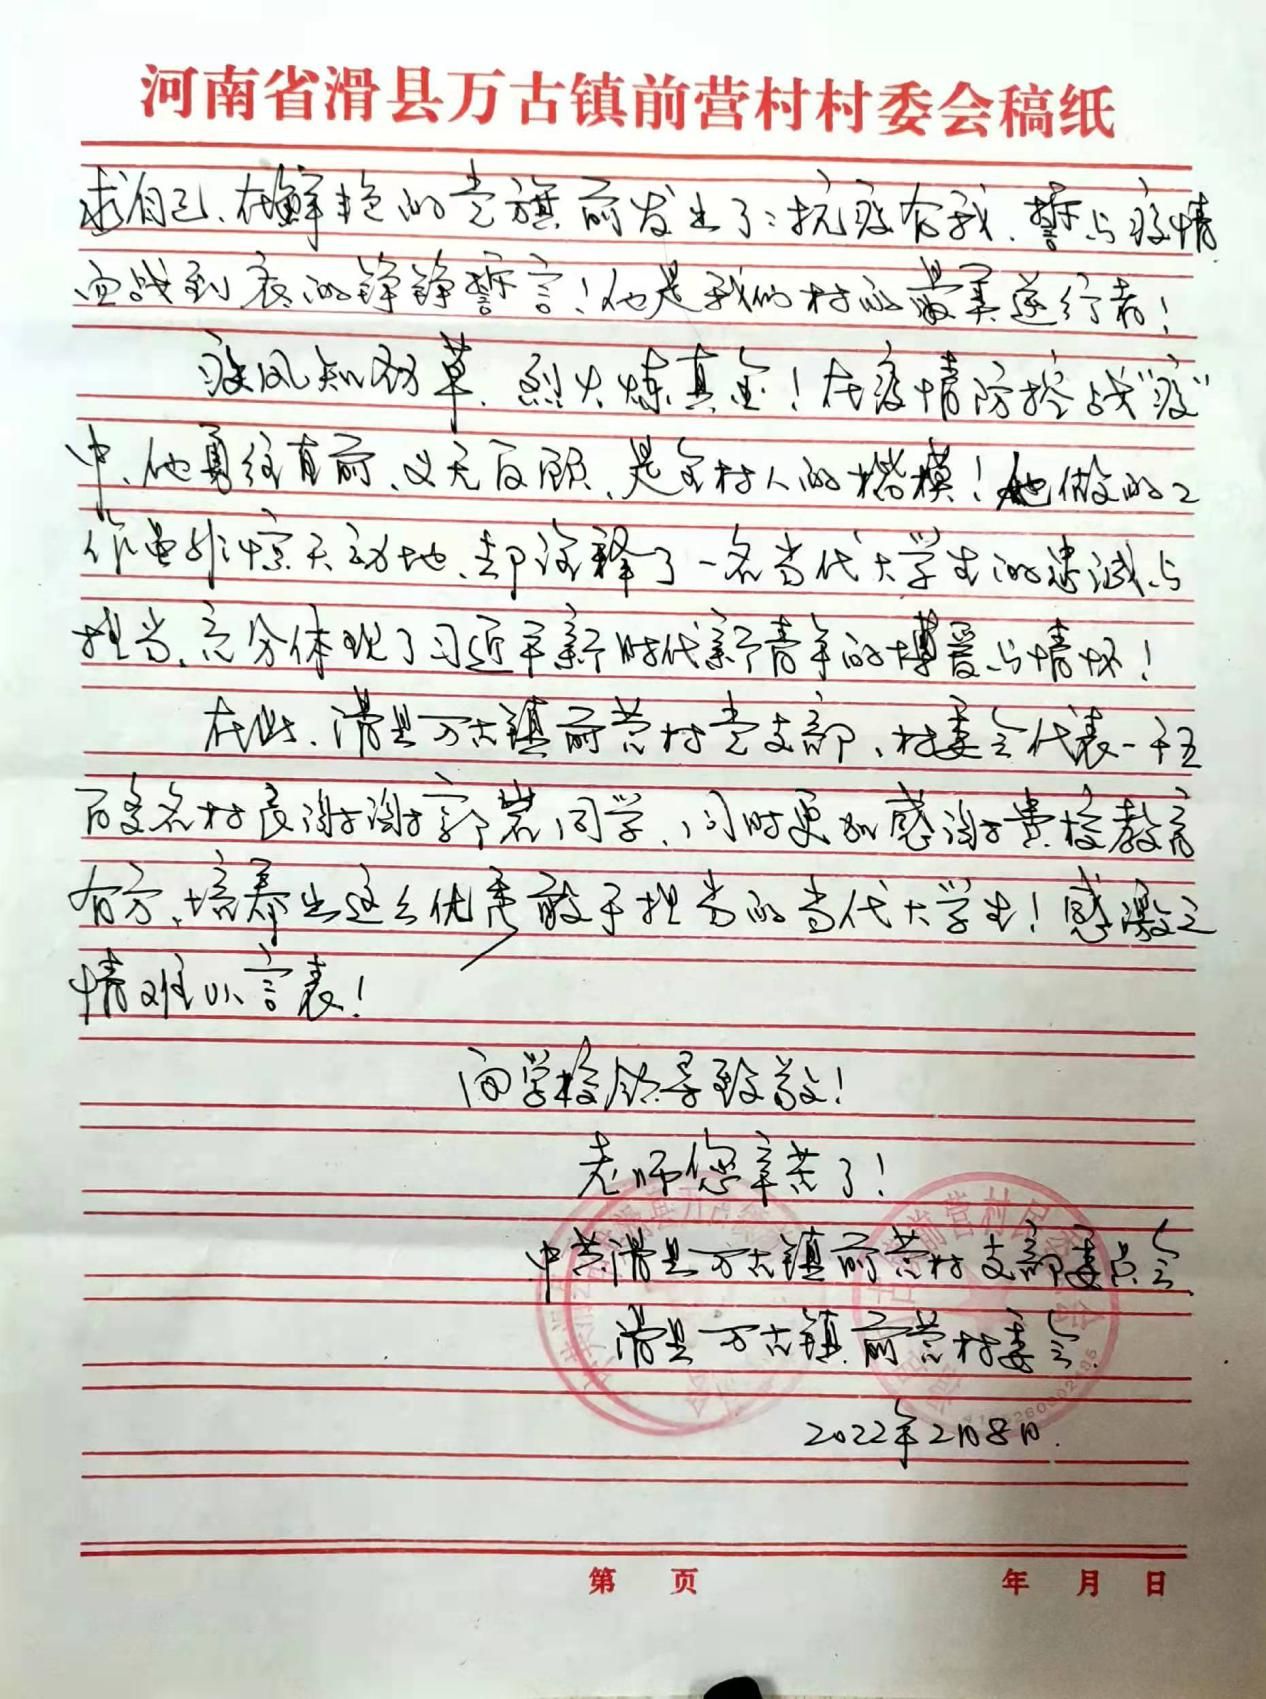 河南省滑县万古镇前营村村委会稿纸
求自己、在鲜艳的党旗前发出了:抗疫有我、誓与疫情
血战到底的铮铮誓言!他是我们村的最美逆行者!
疾风知劲草、烈火炼真金!在疫情防控战"疫"
中、他勇往直前、义无反顾、是全村人的楷模!他做的工
作虽非惊天动地、却诠释了一名当代大学生的忠诚与
担当、充分体现了习近平新时代新青年的博爱与情怀!
在此、滑县万古镇前营村党支部、村委会代表一千五
百多名村民谢谢郭岩同学、同时更加感谢贵校教育
有方、培养出这么优秀敢于担当的当代大学生!感激之
情难以言表!
向学校领导致敬!
老师您辛苦了!
中共滑县万古镇前营村支部委员会
滑县万古镇前营村委会
2022年2月8日.
第 页 年 月 日